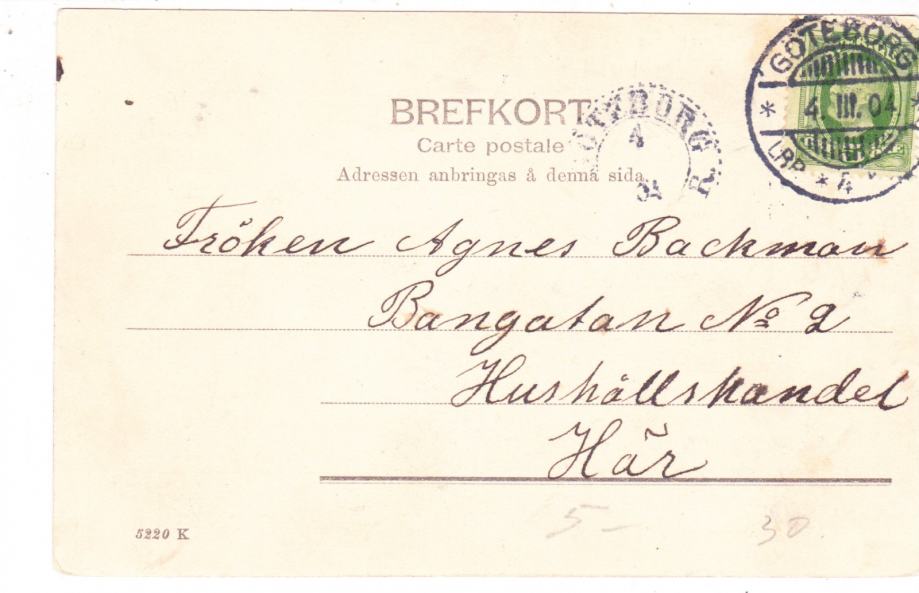 BREFKORT
Carte postale
Adressen anbringas å denna sida.
GÖTEBORG
4. III. 04
LBR
GÖTEBORG
4
04
R.
Fröken Agnes Backman
Bangatan No 2
Hushållshandel
Här
5220 K
5-
30